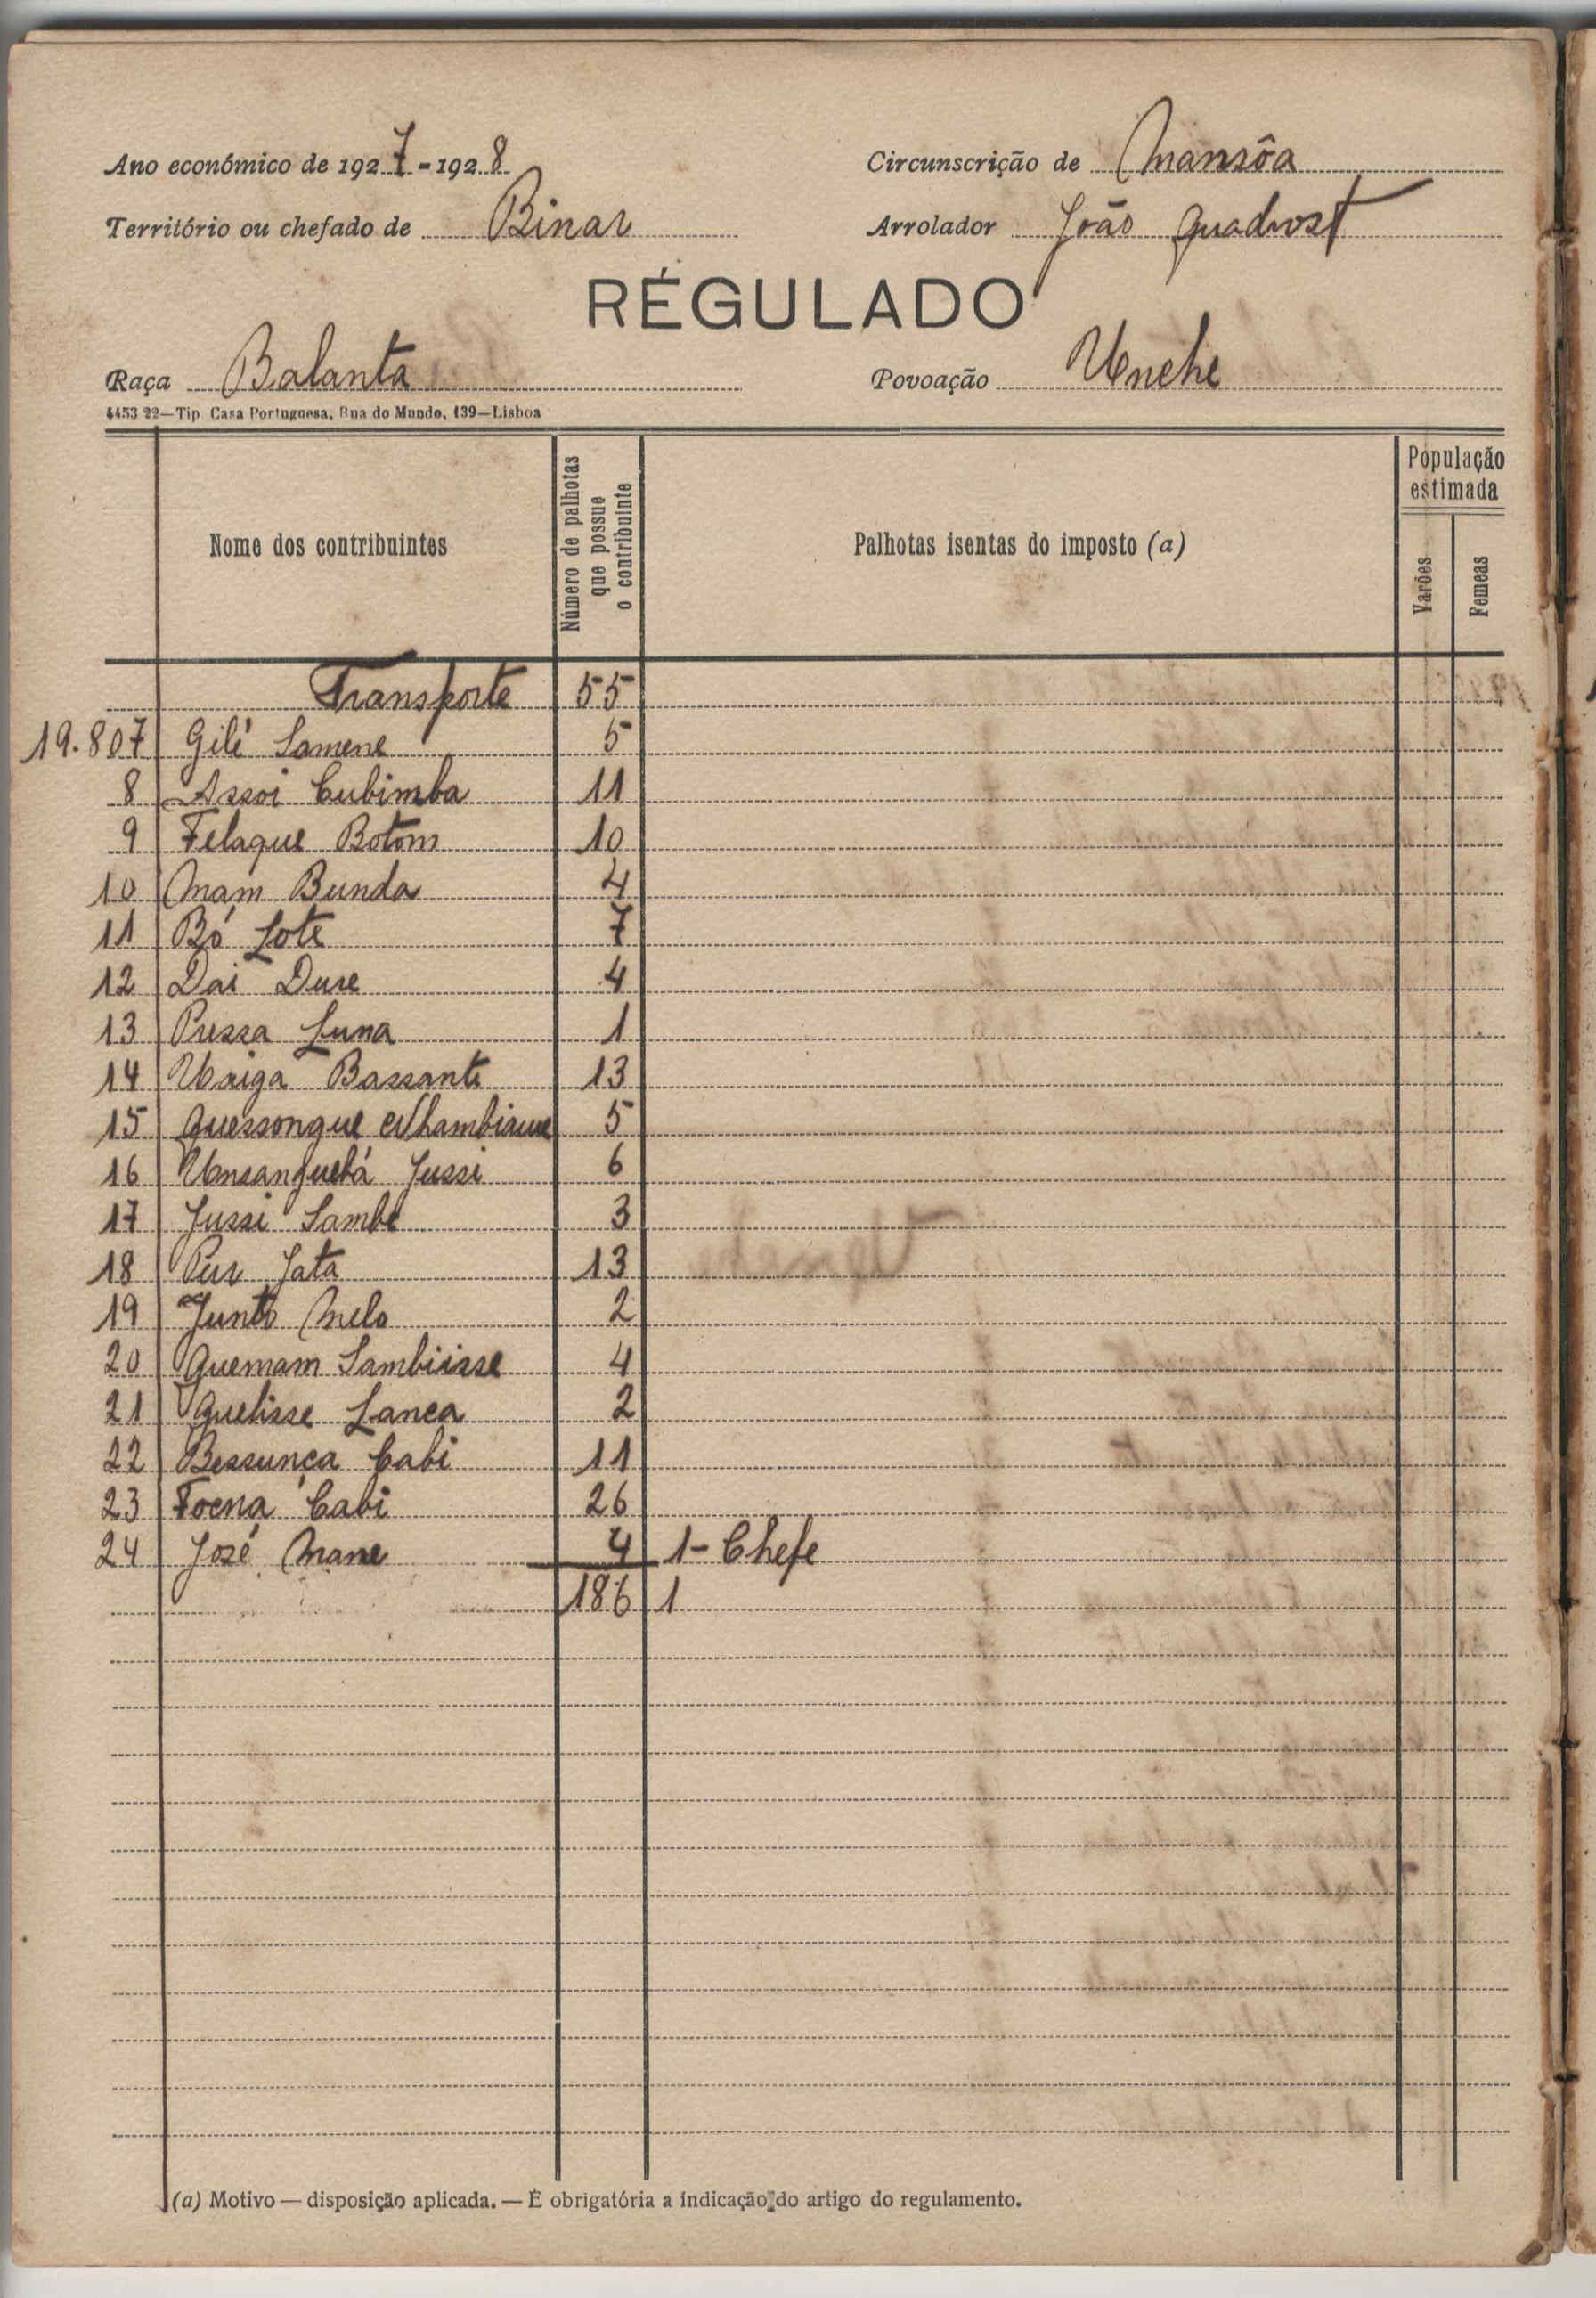 Ano económico de 1927-1928
Circunscrição de Mansôa
Território ou chefado de Binar
Arrolador João Quadrost
RÉGULADO
Raça Balanta
Povoação Unche
4453 22—Tip. Casa Portuguesa, Rua do Mundo, 139—Lisboa
Nome dos contribuintes
Número de palhotas que possue o contribuinte
Palhotas isentas do imposto (a)
População estimada
Varões
Femeas
Transporte 55
19.807 Gilé Samene 5
8 Assoi Cubimba 11
9 Felaque Botom 10
10 Mam Bunda 4
11 Bó Lote 7
12 Dai Dure 4
13 Pressa Luna 1
14 Uaiga Bassante 13
15 Quessongue 5
16 Jussi 6
17 Jussi Sambe 3
18 Pur Jata 13
19 Junto Melo 2
20 Quemam Sambiisse 4
21 Quelisse Lanca 2
22 Bessunca Cabi 11
23 Focna Cabi 26
24 José Mane 4 1- Chefe
186 1
(a) Motivo — disposição aplicada. — É obrigatória a indicação do artigo do regulamento.